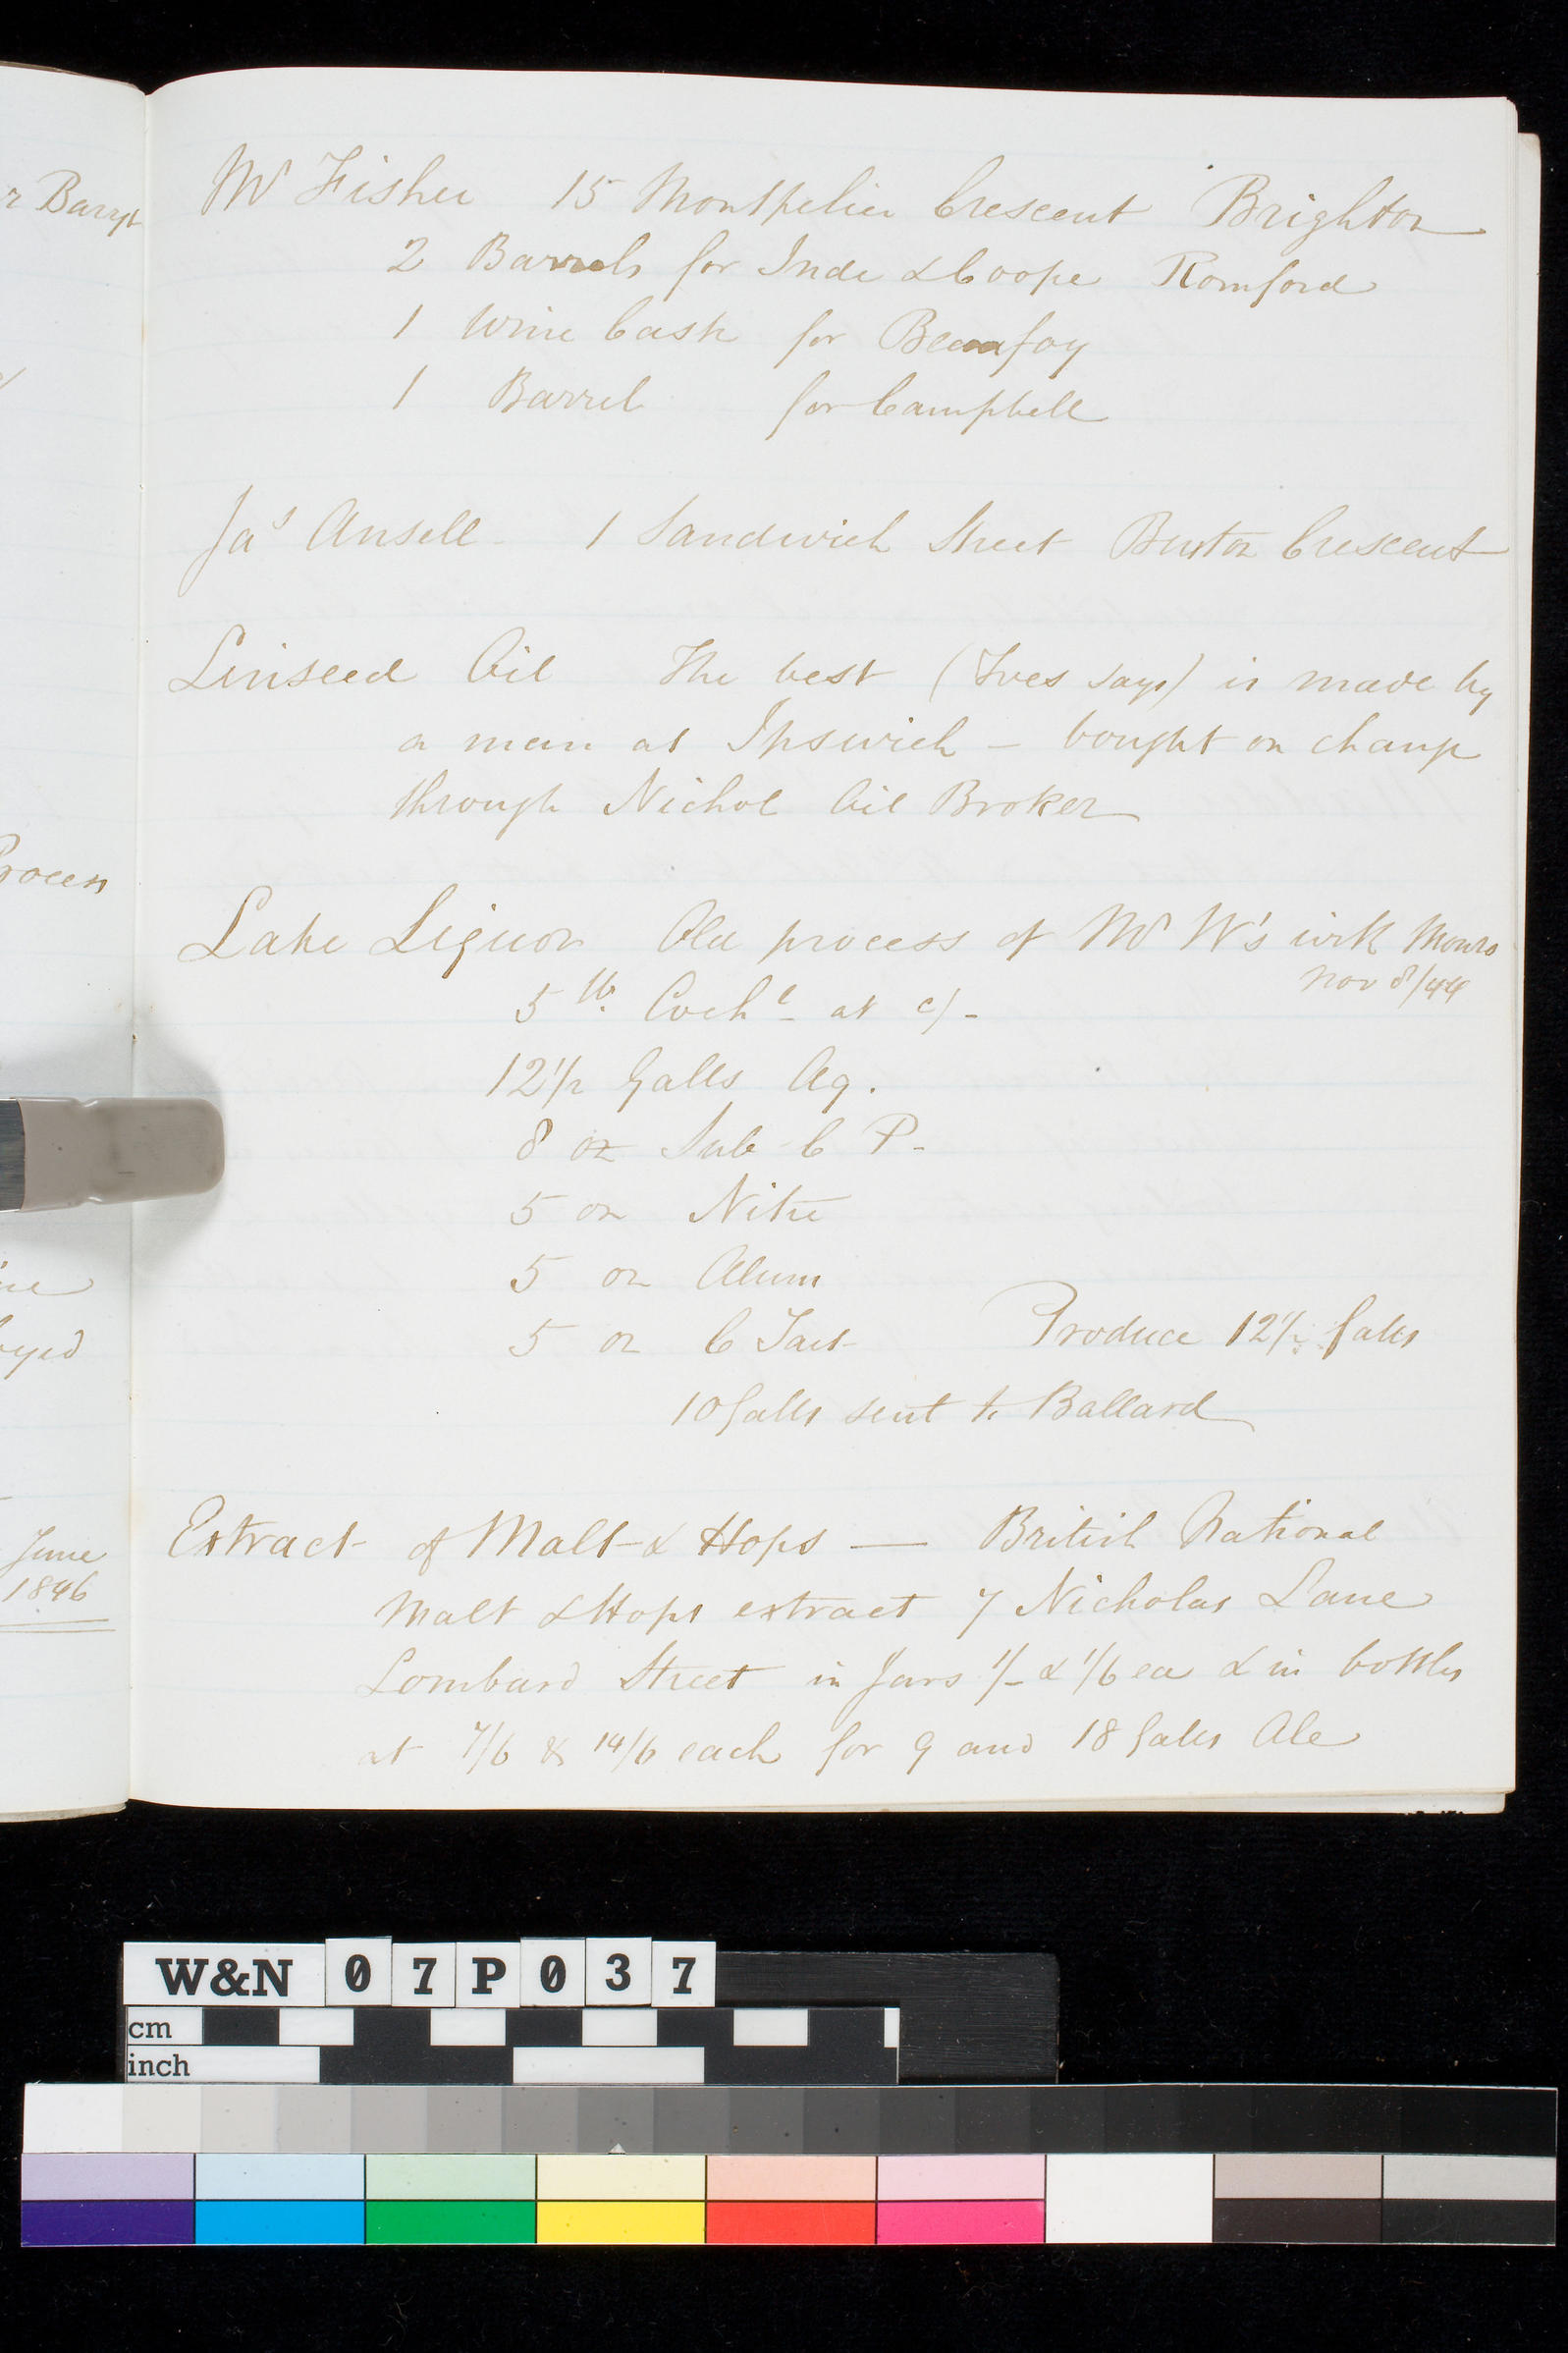 r Baryt
Process
yed
June
1846
Mr Fisher 15 Montpelier Crescent Brighton
2 Barrels for Inde & Coope Romford
1 Wine Cask for Beaufoy
1 Barrel for Campbell
Jas Ansell 1 Sandwich Street Burton Crescent
Linseed Oil The best (Ives says) is made by
a man at Ipswich - bought on change
through Nichol Oil Broker
Lake Liquor Old process of Mr W's with Monro
Nov 8/44
5 lb. Cochl at
12 1/2 Galls Aq.
8 oz Sub C P-
5 oz Nitre
5 oz Alum
5 oz C Tart Produce 12 1/2 Galls
10 Galls sent to Ballard
Extract of Malt & Hops — British National
Malt & Hops extract 7 Nicholas Lane
Lombard Street in Jars 1/- & 1/6 ea & in bottles
at 7/6 & 14/6 each for 9 and 18 Galls Ale
W&N 07P037
cm
inch